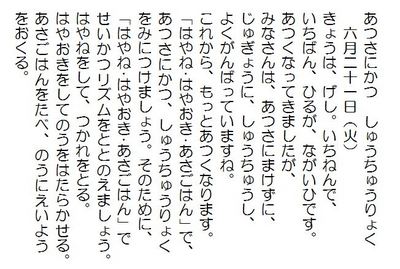 あつさにかつ　しゅうちゅうりょく
六月二十一日（火）
きょうは、げし。いちねんで、
いちばん、ひるが、ながいひです。
あつくなってきましたが、
みなさんは、あつさにまけずに、
じゅぎょうに、しゅうちゅうし、
よくがんばっていますね。
これから、もっとあつくなります。
「はやね・はやおき・あさごはん」で、
あつさにかつ、しゅうちゅうりょく
をみにつけましょう。そのために、
「はやね・はやおき・あさごはん」で
せいかつリズムをととのえましょう。
はやねをして、つかれをとる。
はやおきをしてのうをはたらかせる。
あさごはんをたべ、のうにえいよう
をおくる。